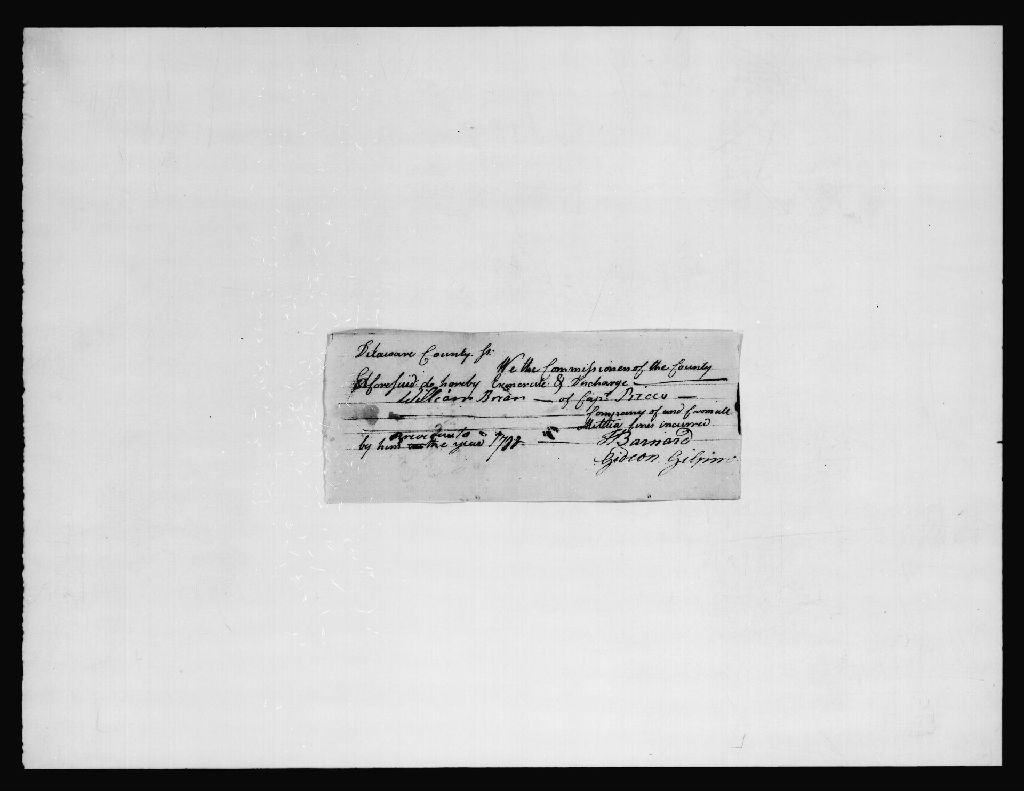 Delaware County Ss.
We the Commissioners of the County
Aforesaid do hereby Exonerate & Discharge
William Brian of Capt. Prices
Company of and from all
Militia fines incurred
previous to
by him in the year 1798
J Barnard
Gideon Gilpin